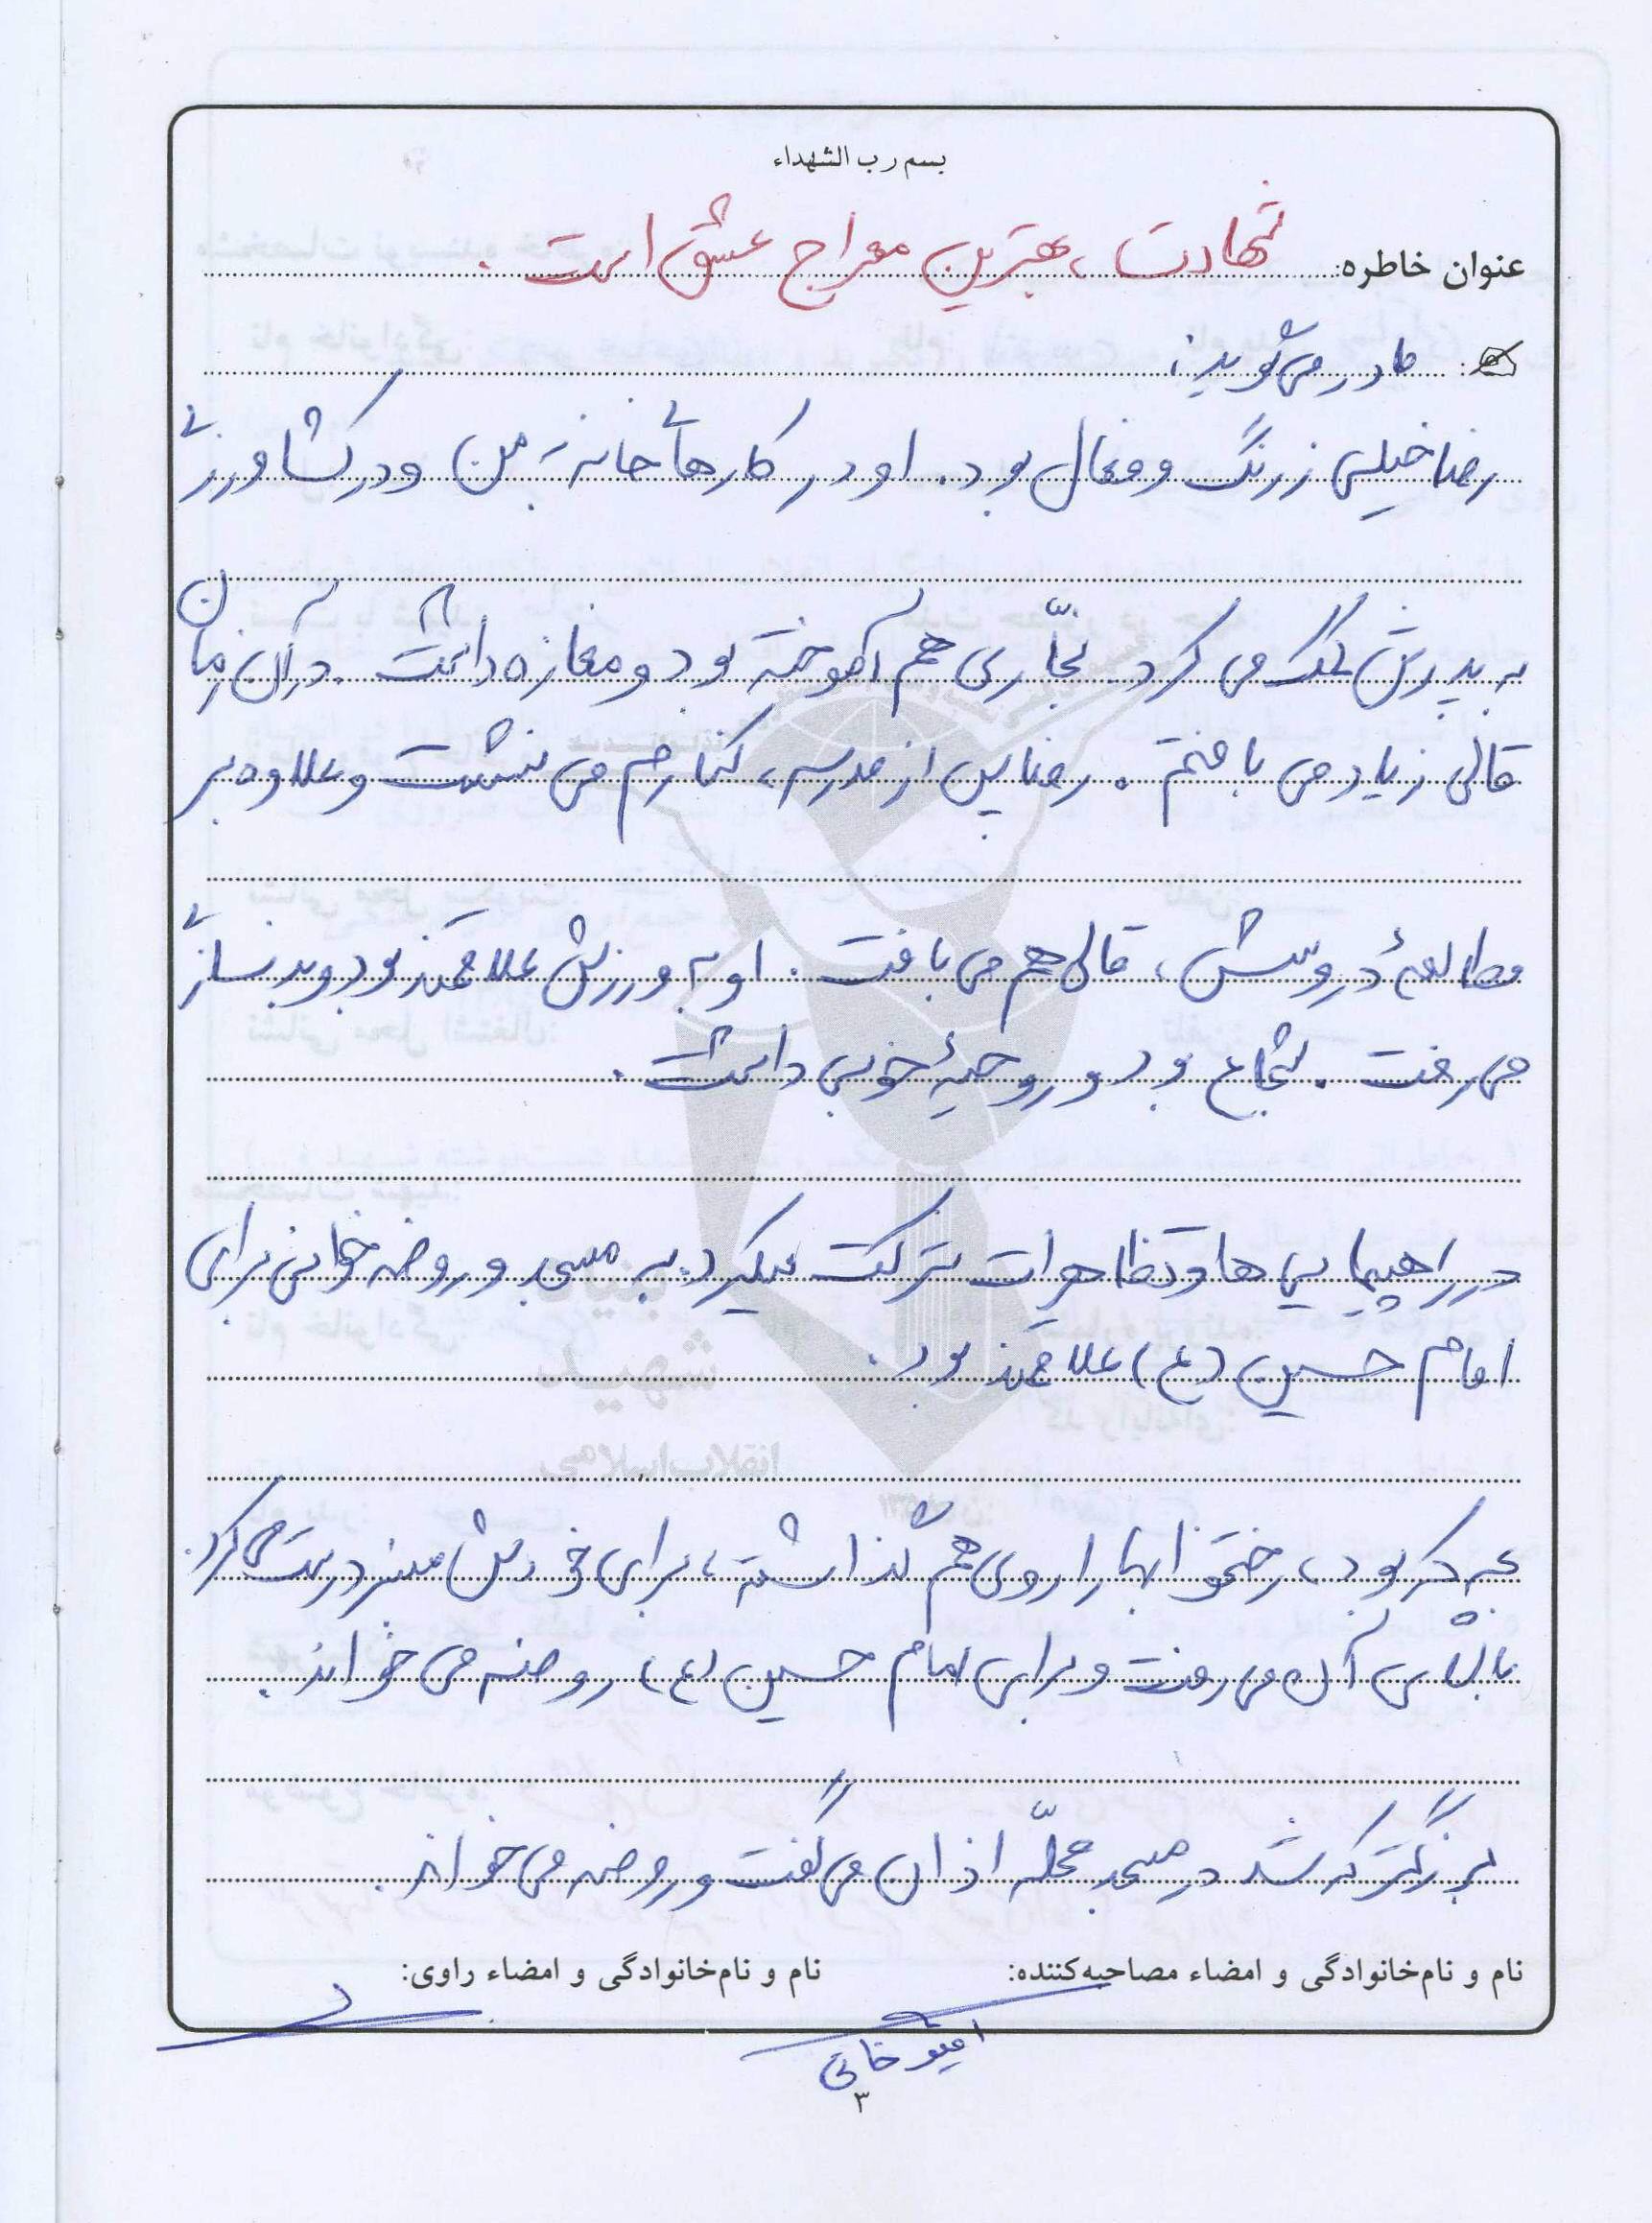 بسم رب الشهداء
عنوان خاطره: شهادت، بهترین معراج عشق است.
مادر می گوید:
رضا خیلی زرنگ و فعال بود. او در کارهای خانه به من و در کشاورزی
به پدرش کمک می کرد. نجّاری هم آموخته بود و مغازه داشت. در آن زمان
قالی زیاد می بافتم. رضا پس از مدرسه، کنارم می نشست و علاوه بر
مطالعهٔ دروسش، قالی هم می بافت. او به ورزش علاقمند بود و بدنسازی
می رفت. شجاع بود و روحیهٔ خوبی داشت.
در راهپیمایی ها و تظاهرات شرکت میکرد. به مسجد و روضه خوانی برای
امام حسین (ع) علاقمند بود.
بچه که بود، رختخوابها را روی هم گذاشته، برای خودش منبر درست می کرد.
بالای آن می رفت و برای امام حسین (ع) روضه می خواند.
بزرگتر که شد در مسجد محلّه اذان می گفت و روضه می خواند.
نام و نام‌خانوادگی و امضاء مصاحبه‌کننده: نام و نام‌خانوادگی و امضاء راوی:
۳